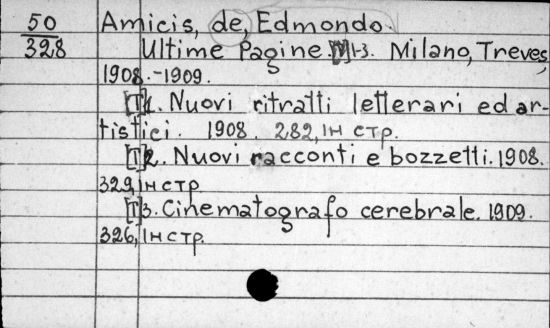 50
328
Amicis, de, Edmondo.
Ultime Pagine. [T]1-3. Milano, Treves,
1908.-1909.
[T]1. Nuovi ritratti letterari ed ar-
tistici. 1908. 282, 1н стр.
[T]2. Nuovi racconti e bozzetti. 1908.
329, 1нстр.
[T]3. Cinematografo cerebrale. 1909.
326, 1нстр.